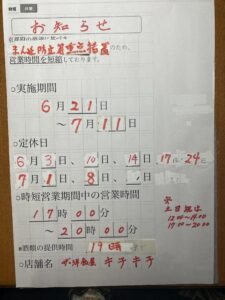 お知らせ
まん延防止等重点措置のため、
営業時間を短縮しております。
○実施期間
6月21日
～7月11日
○定休日
6月3日、10日、14日、17日、24日
7月1日、8日、
○時短営業期間中の営業時間
17時00分
～20時00分
※酒類の提供時間 19時
○店舗名 キチキチ
土日祝は